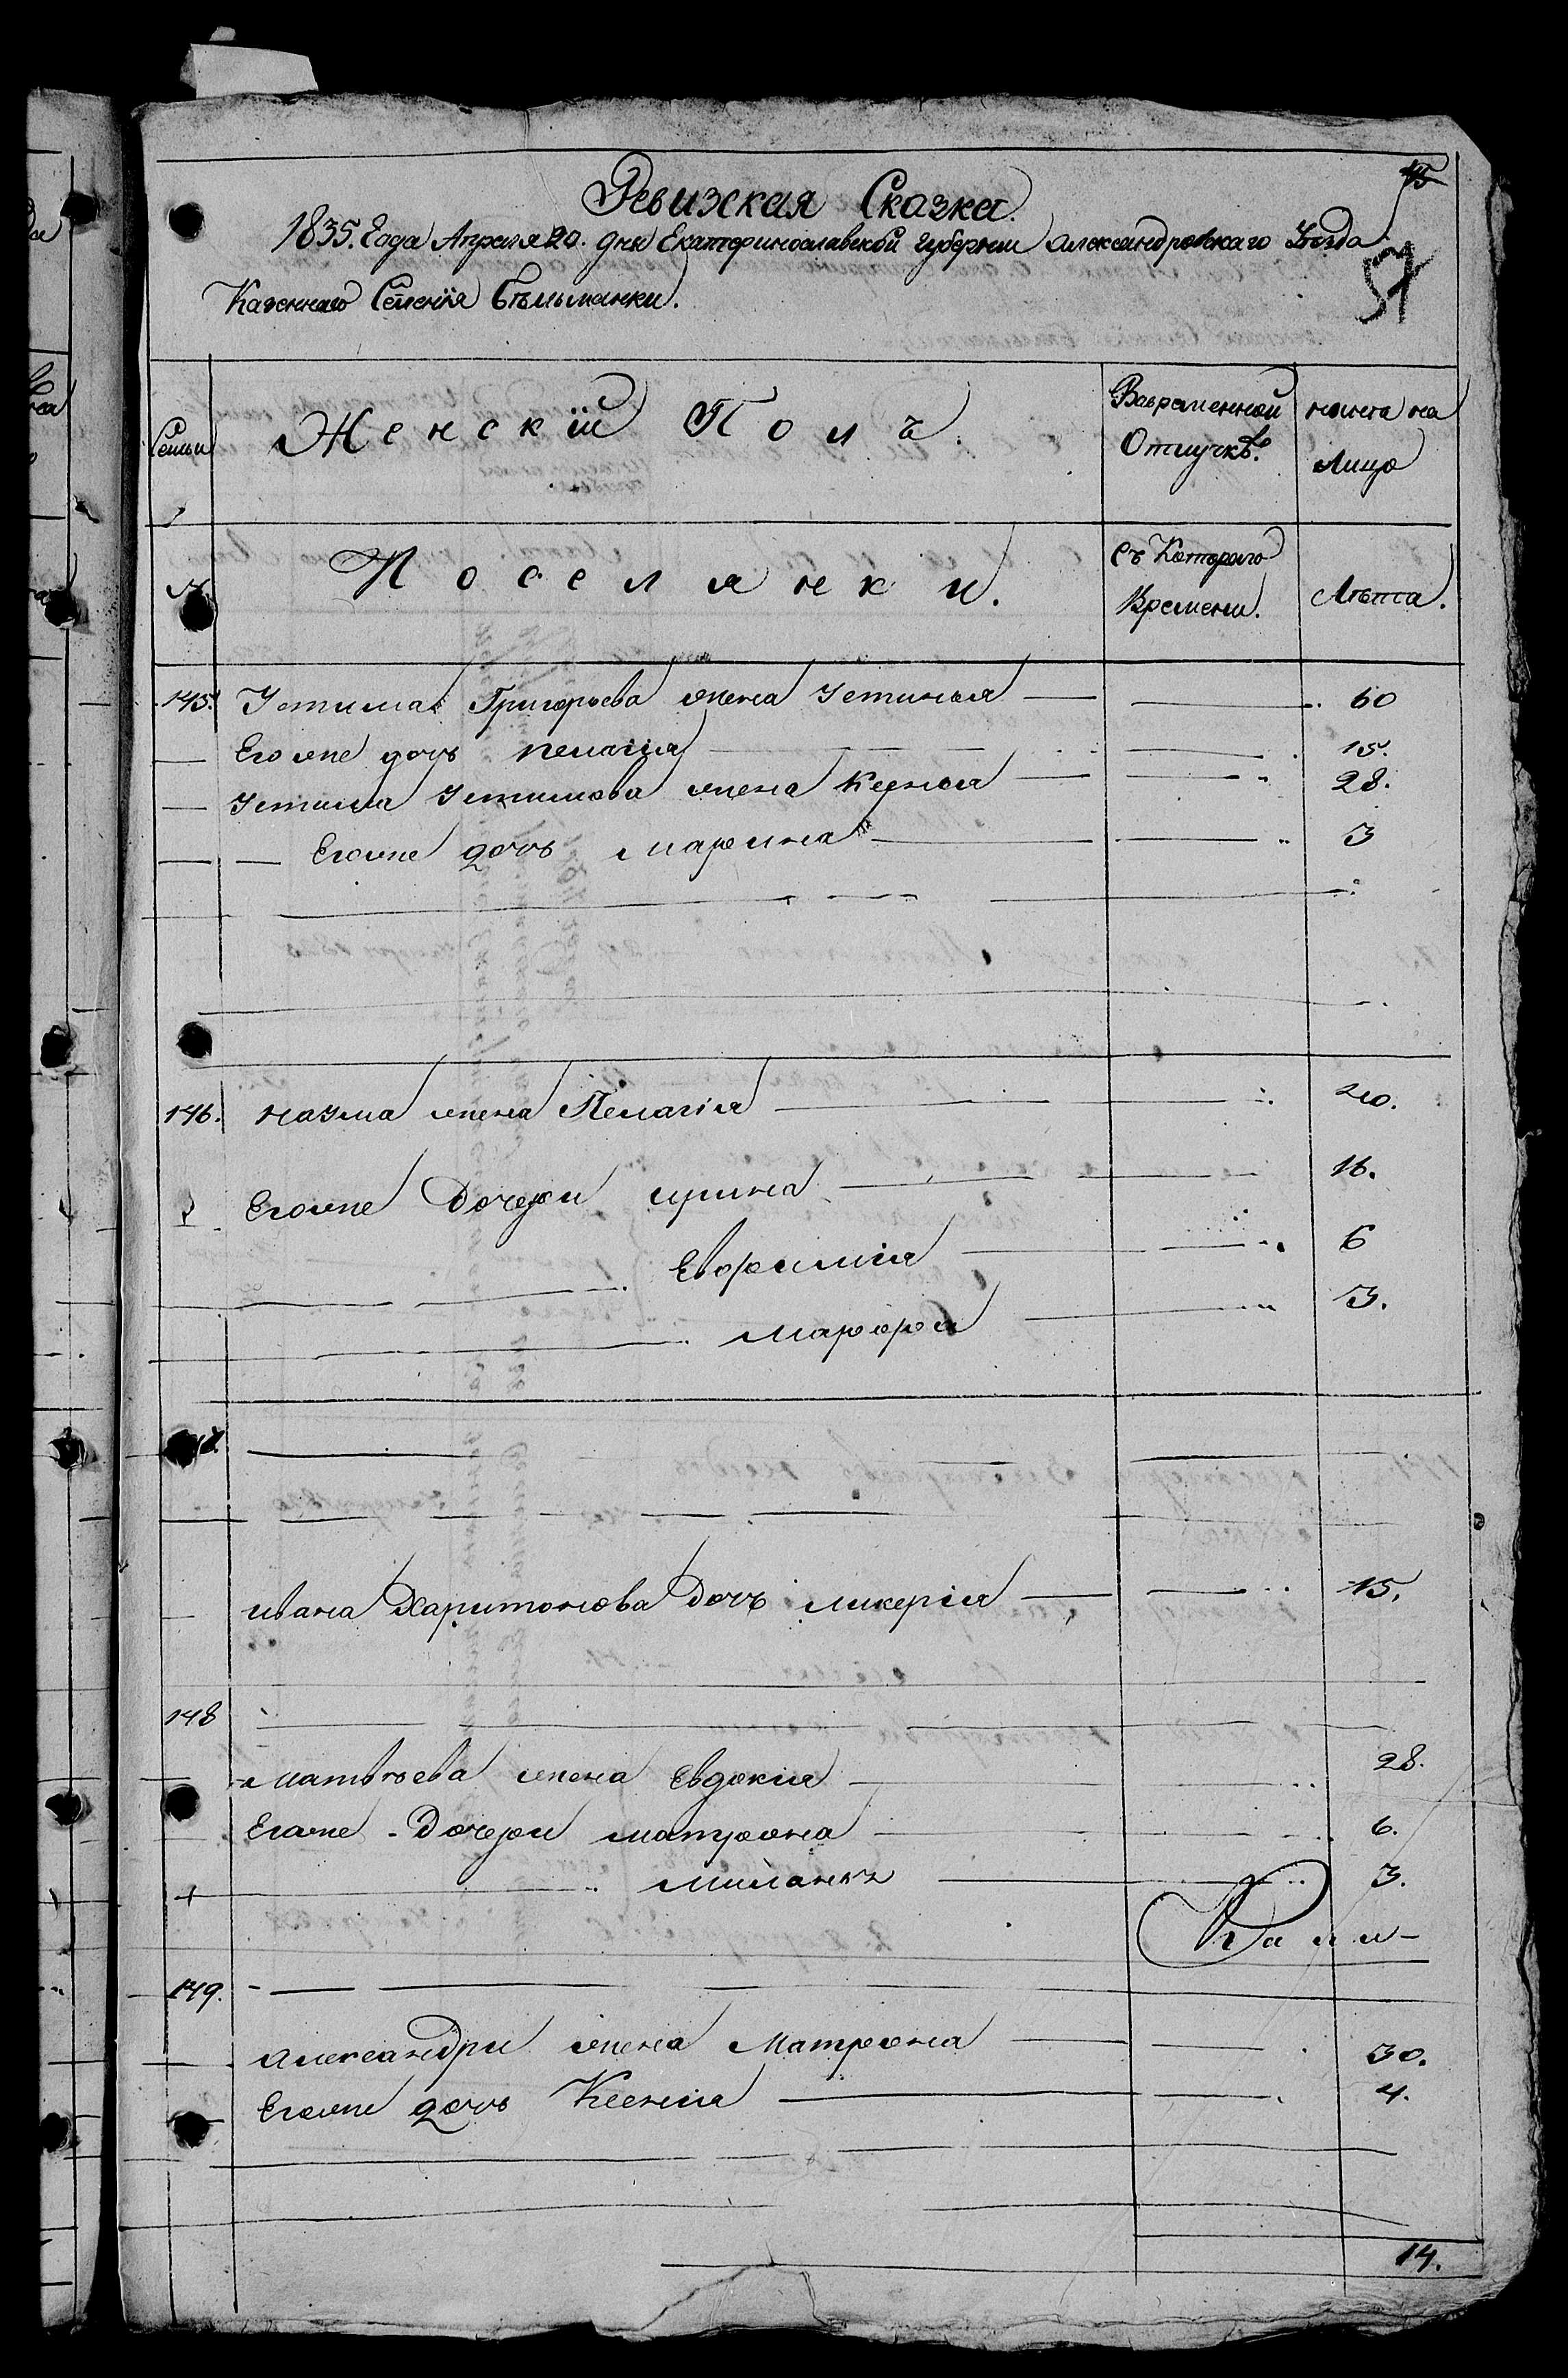 45
Ревизская Сказка.
1835. Года Апреля 20. дня Екатеринославской губернии Александровскаго Уезда
57
Казеннаго Селенiя Бѣльманки.
Семьи
Женскiй Полъ.
Вовременной Отлучкѣ.
нынѣ на Лицо
№
Поселянки.
Съ Котораго Времени.
Лѣта.
145. Устима Григорьева жена Устинья 60
Егоже дочь пелагiя 15.
Устима Устимова жена Ксенья 28.
Егоже дочь марина 3
146. назма жена Пелагiя 40.
Егоже Дочери ирина 16.
Евфимiя 6
марфра 3.
ивана Харитонова Дочь ликерiя 15.
148
матвѣева жена Евдокия 28.
Егоже Дочери матрона 6.
миланья 3.
149.
александри жена Матрона 30.
Егоже дочь Ксения 4.
14.